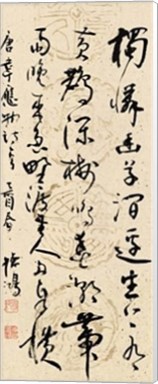 獨憐幽草澗邊生上有
黃鸝深樹鳴春潮帶
雨晚來急野渡無人舟自橫
唐韋應物詩